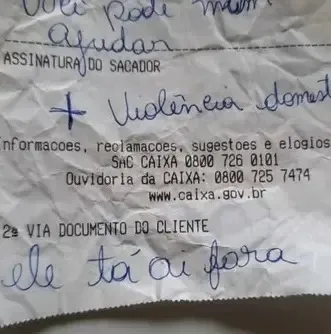 Você pode mim
ajudar
ASSINATURA DO SACADOR
+ Violência domest
nformacoes, reclamacoes, sugestoes e elogios
SAC CAIXA 0800 726 0101
Ouvidoria da CAIXA: 0800 725 7474
www.caixa.gov.br
2ª VIA DOCUMENTO DO CLIENTE
ele tá ai fora